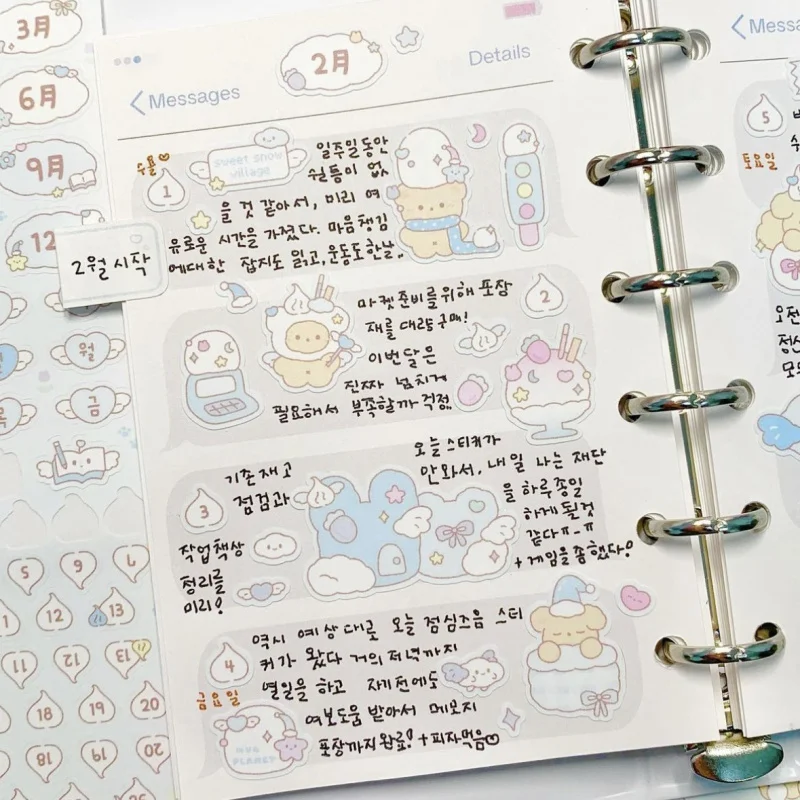 3月
6月
9月
12
2월 시작
월
금
2月
Messages
Details
수욜
1
sweet snow
village
일주일동안
쉴틈이 없
을 것 같아서, 미리 여
유로운 시간을 가졌다. 마음챙김
에대한 잡지도 읽고, 운동도한날..
2
마켓준비를위해 포장
재를 대량구매!
이번달은
진짜 넘치게
필요해서 부족할까 걱정
3
기존재고
점검과
작업책상
정리를
미리!
오늘 스티커가
안와서, 내일 나는 재단
을 하루종일
하게 될것
같다ㅠ_ㅠ
+게임을 좀했다!
4
금요일
역시 예상대로 오늘 점심즈음 스티
커가 왔다 거의 저녁까지
열일을 하고 자기전에도
여보도움 받아서 메모지
포장까지완료! +피자먹음
PLANET
3
9
12
13
11
12
13
18
19
20
18
19
20
5
토요일
오전